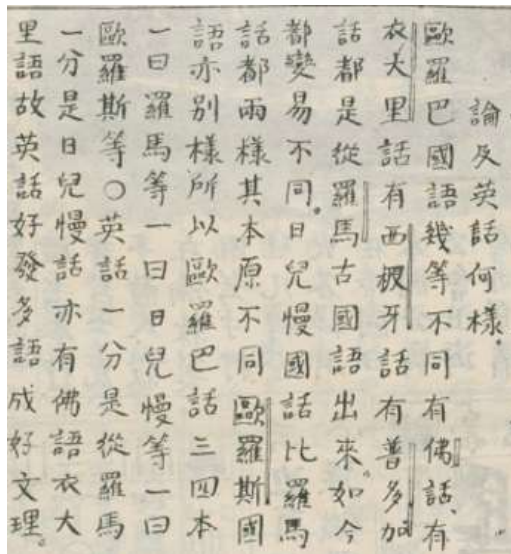 論及英話何樣。
歐羅巴國語幾等不同有佛話、有
衣大里話有西椵牙話有普多加
話都是從羅馬古國語出來。如今
都變易不同。日兒慢國話比羅馬
話都兩樣其本原不同歐羅斯國
語亦別樣所以歐羅巴話三四本
一曰羅馬等一曰日兒慢等一曰
歐羅斯等○英話一分是從羅馬
一分是日兒慢話亦有佛語衣大
里語故英話好發多語成好文理。